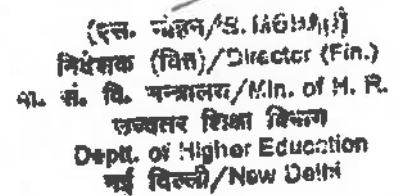 (एस. मोहन/S. MOHAN)
निदेशक (वित्त)/Director (Fin.)
मा. सं. वि. मन्त्रालय/Min. of H. R.
उच्चतर शिक्षा विभाग
Deptt. of Higher Education
नई दिल्ली/New Delhi